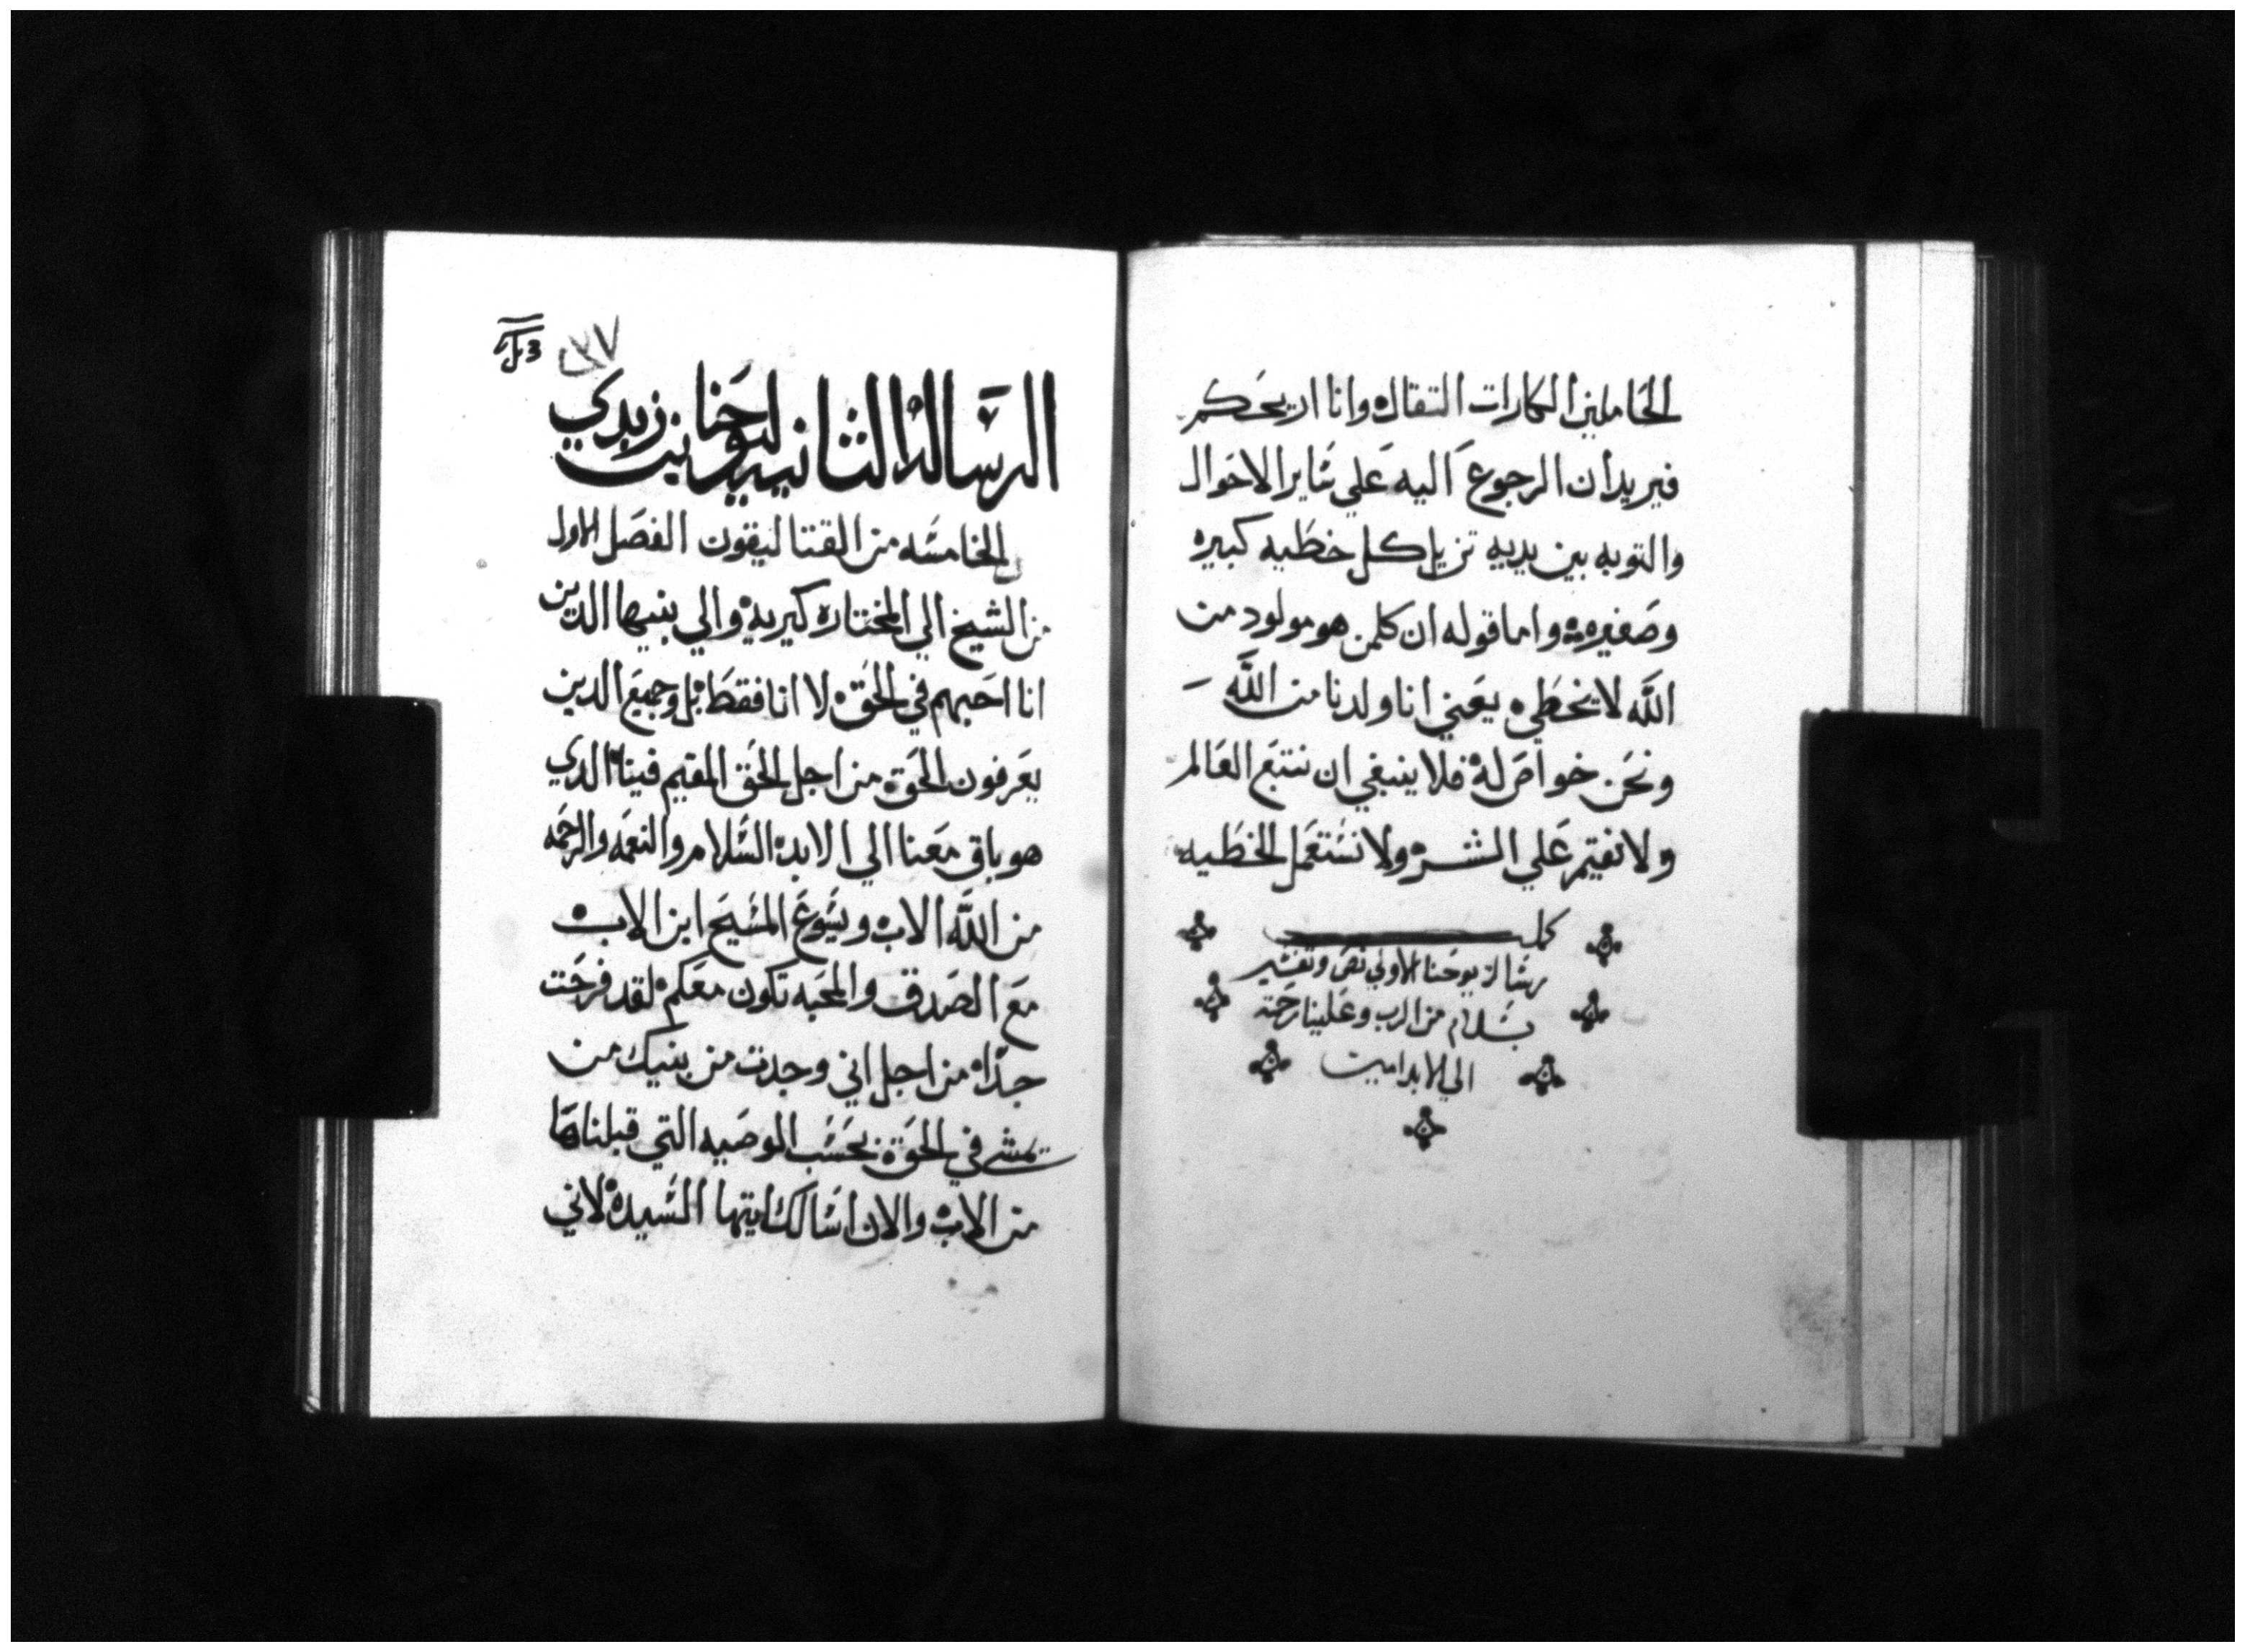 الحاملين الكارات التقال وانا اريحكم
فيريدان الرجوع اليه علي ساير الاحوال
والتوبه بين يديه تزيل كل خطيه كبيره
وصغيره واما قوله ان كلمن هو مولود من
الله لا يخطي يعني انا ولدنا من الله
ونحن خواص له فلا ينبغي ان نتبع العالم
ولا نقيم علي الشر ولا نستعمل الخطيه
كمل
رسالة يوحنا الاولي نص وتفسير
بسلام من الرب وعلينا رحمته
الي الابد امين
٢٧
الرساله الثانيه ليوحنا بن زبدي
الخامسه من القتاليقون الفصل الاول
من الشيخ الي المختاره كيريه والي بنيها الدين
انا احبهم في الحق لا انا فقط بل وجميع الدين
يعرفون الحق من اجل الحق المقيم فينا الدي
هو باق معنا الي الابد السلام والنعمه والرحمه
من الله الاب ويسوع المسيح ابن الاب
مع الصدق والمحبه تكون معكم لقد فرحت
جدا من اجل اني وجدت من بنيك من
يمشي في الحق بحسب الوصيه التي قبلناها
من الاب والان اسالك ايتها السيده لاني